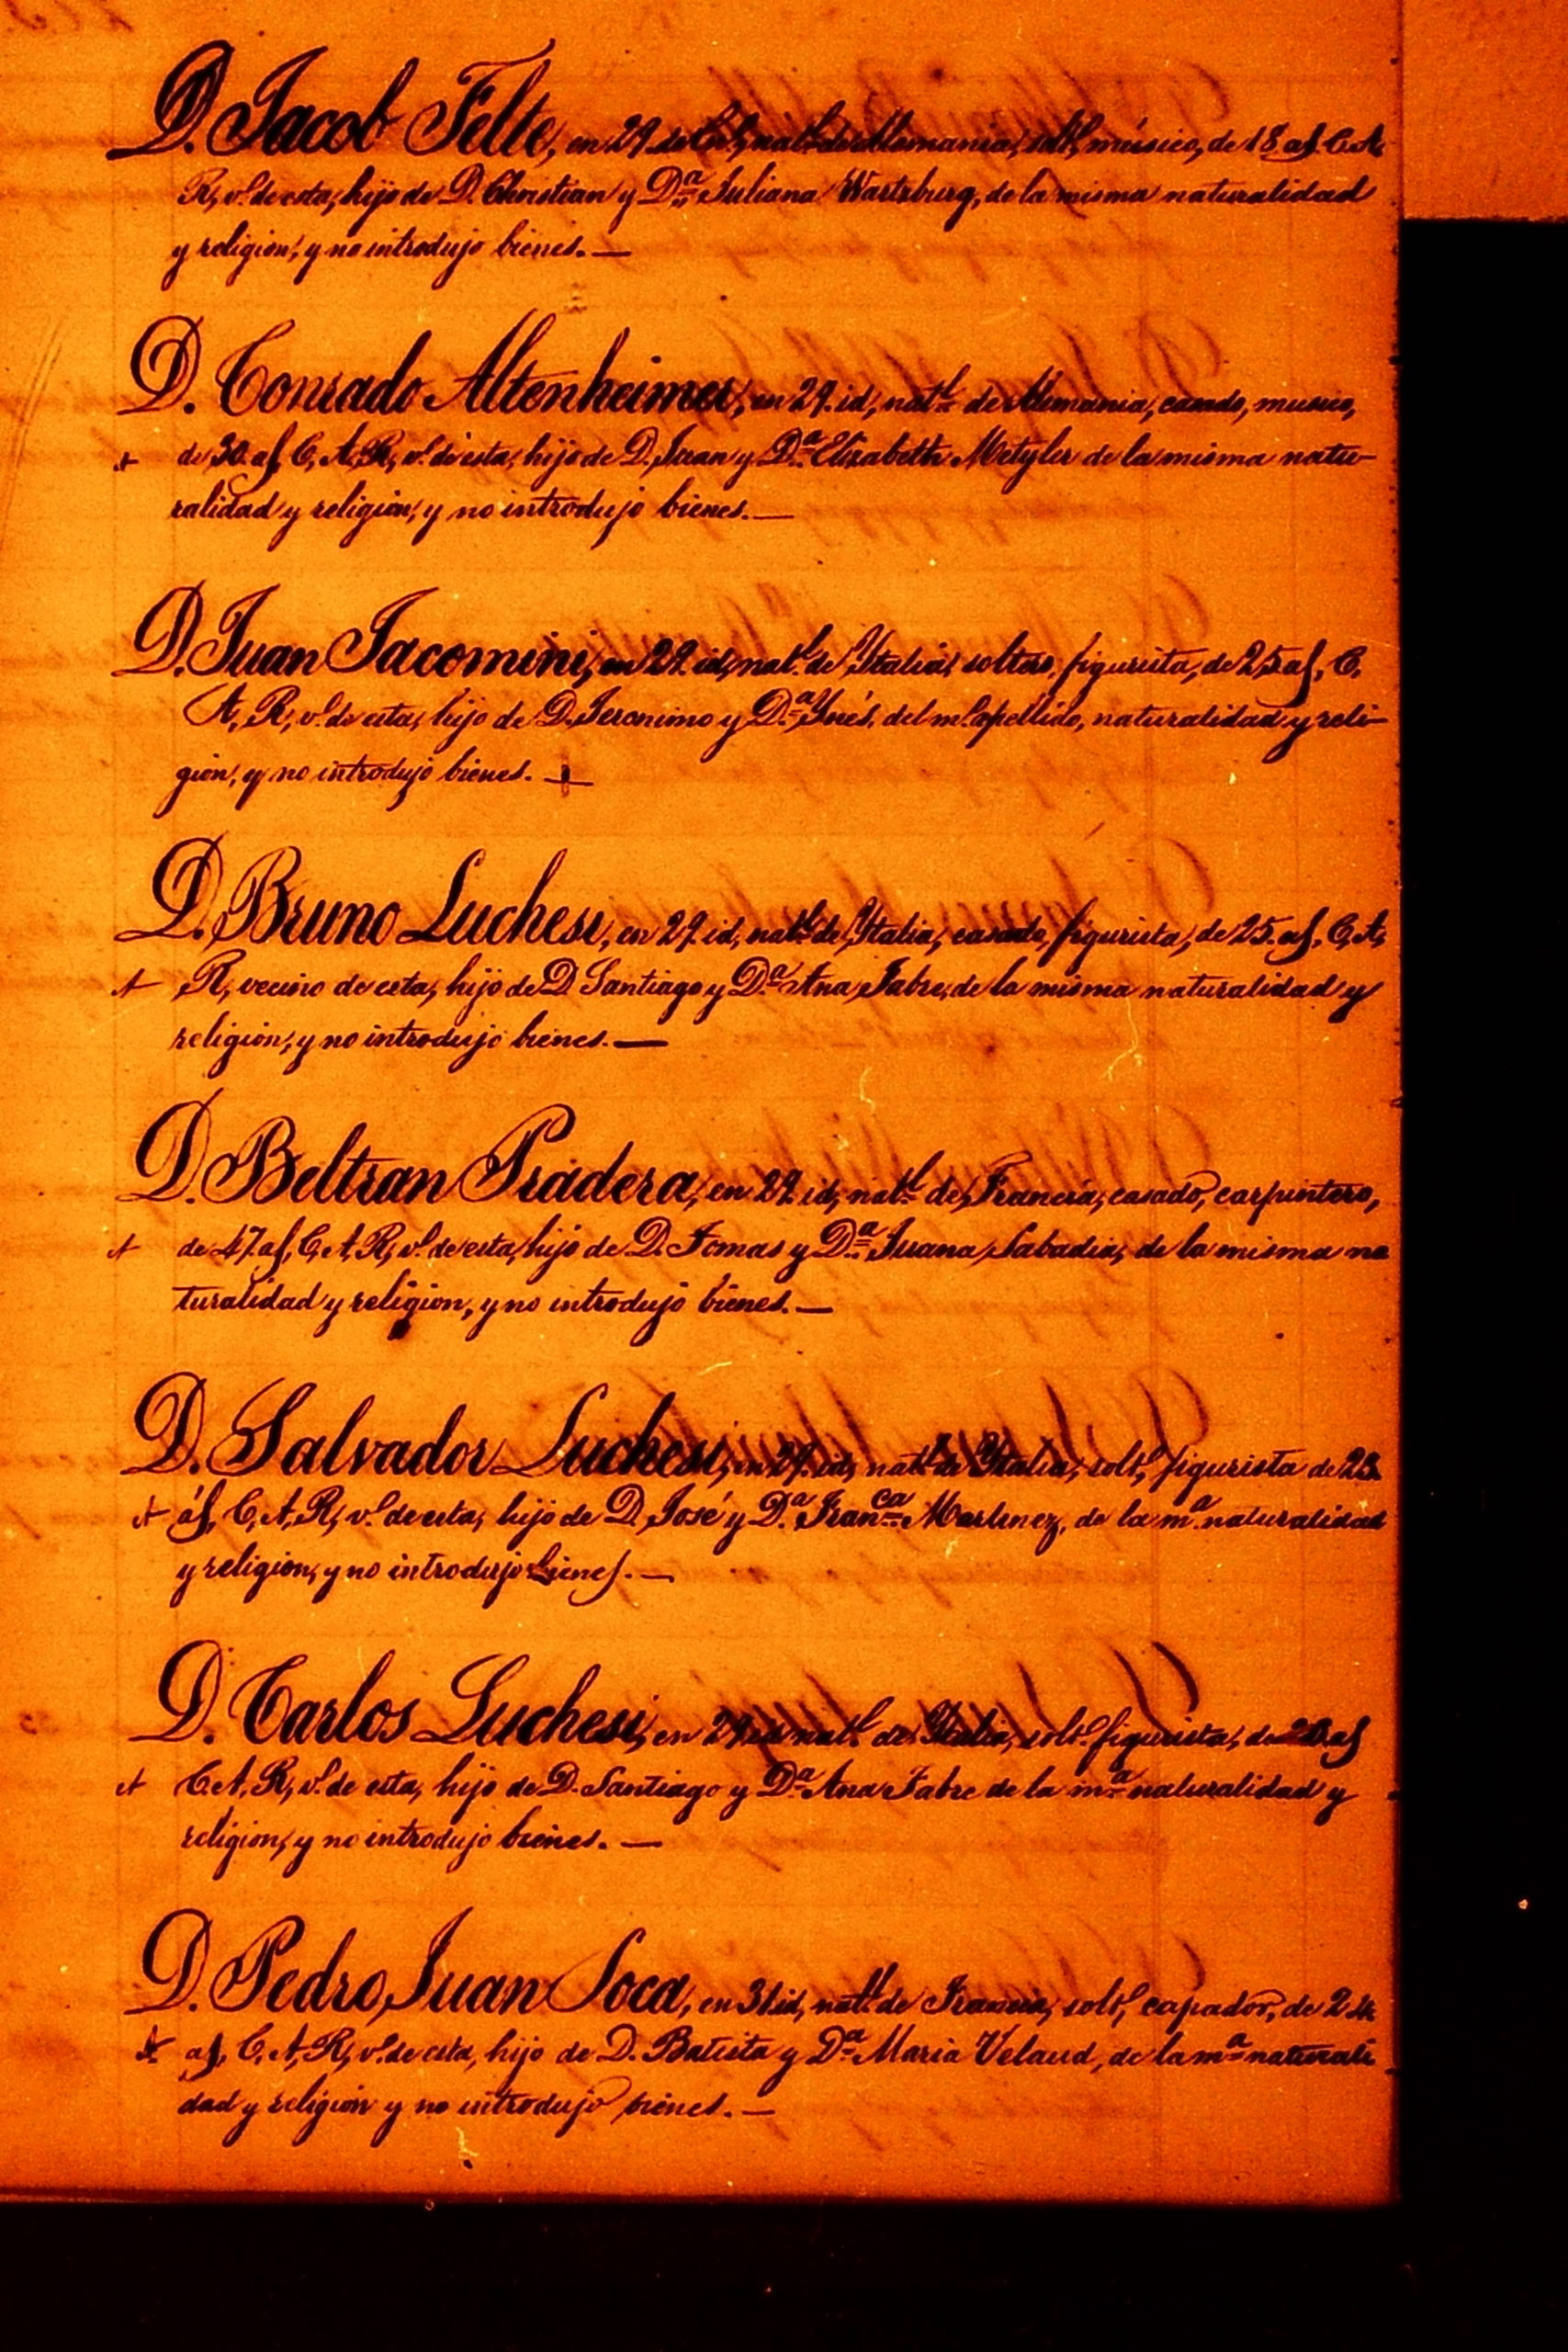 D. Jacob Felte, en 29. de En.º, nat.l de Alemania, solt.º, músico, de 18 as. C. A.
R, v.º de esta, hijo de D. Christian y D.ª Juliana Wartzburg, de la misma naturalidad
y religion, y no introdujo bienes. —
D. Conrado Altenheimer, en 29. id, nat.l de Alemania, casado, musico,
de 30. as, C, A, R, v.º de esta, hijo de D. Juan y D.ª Elizabeth Metyler de la misma natu-
ralidad y religion, y no introdujo bienes. —
D. Juan Jacomini, en 29. id, nat.l de Ytalia, soltero, figurista, de 25 as, C,
A, R, v.º de esta, hijo de D. Jeronimo y D.ª Ynés, del m.º apellido, naturalidad y reli-
gion, y no introdujo bienes. —
D. Bruno Luchesi, en 29. id, nat.l de Ytalia, casado, figurista, de 25. as, C, A,
R, vecino de esta, hijo de D Santiago y D.ª Ana Fabre, de la misma naturalidad y
religion, y no introdujo bienes. —
D. Beltran Pradera, en 29. id, nat.l de Francia, casado, carpintero,
de 47. as, C, A, R, v.º de esta, hijo de D. Tomas y D.ª Juana Sabadia, de la misma na
turalidad y religion, y no introdujo bienes. —
D. Salvador Luchesi, en 29. id, nat.l de Ytalia, solt.º, figurista de 23.
as, C, A, R, v.º de esta, hijo de D. José y D.ª Fran.ca Martinez, de la m.ª naturalidad
y religion, y no introdujo bienes. —
D. Carlos Luchesi, en 29. id nat.l de Ytalia, solt.º figurista, de as
C. A, R, v.º de esta, hijo de D. Santiago y D.ª Ana Fabre de la m.ª naturalidad y
religion, y no introdujo bienes. —
D. Pedro Juan Soca, en 31 id, nat.l de Francia, solt.º, capador, de 24
as, C, A, R, v.º de esta, hijo de D. Batista y D.ª Maria Velaud, de la m.ª naturali
dad y religion y no introdujo bienes. —